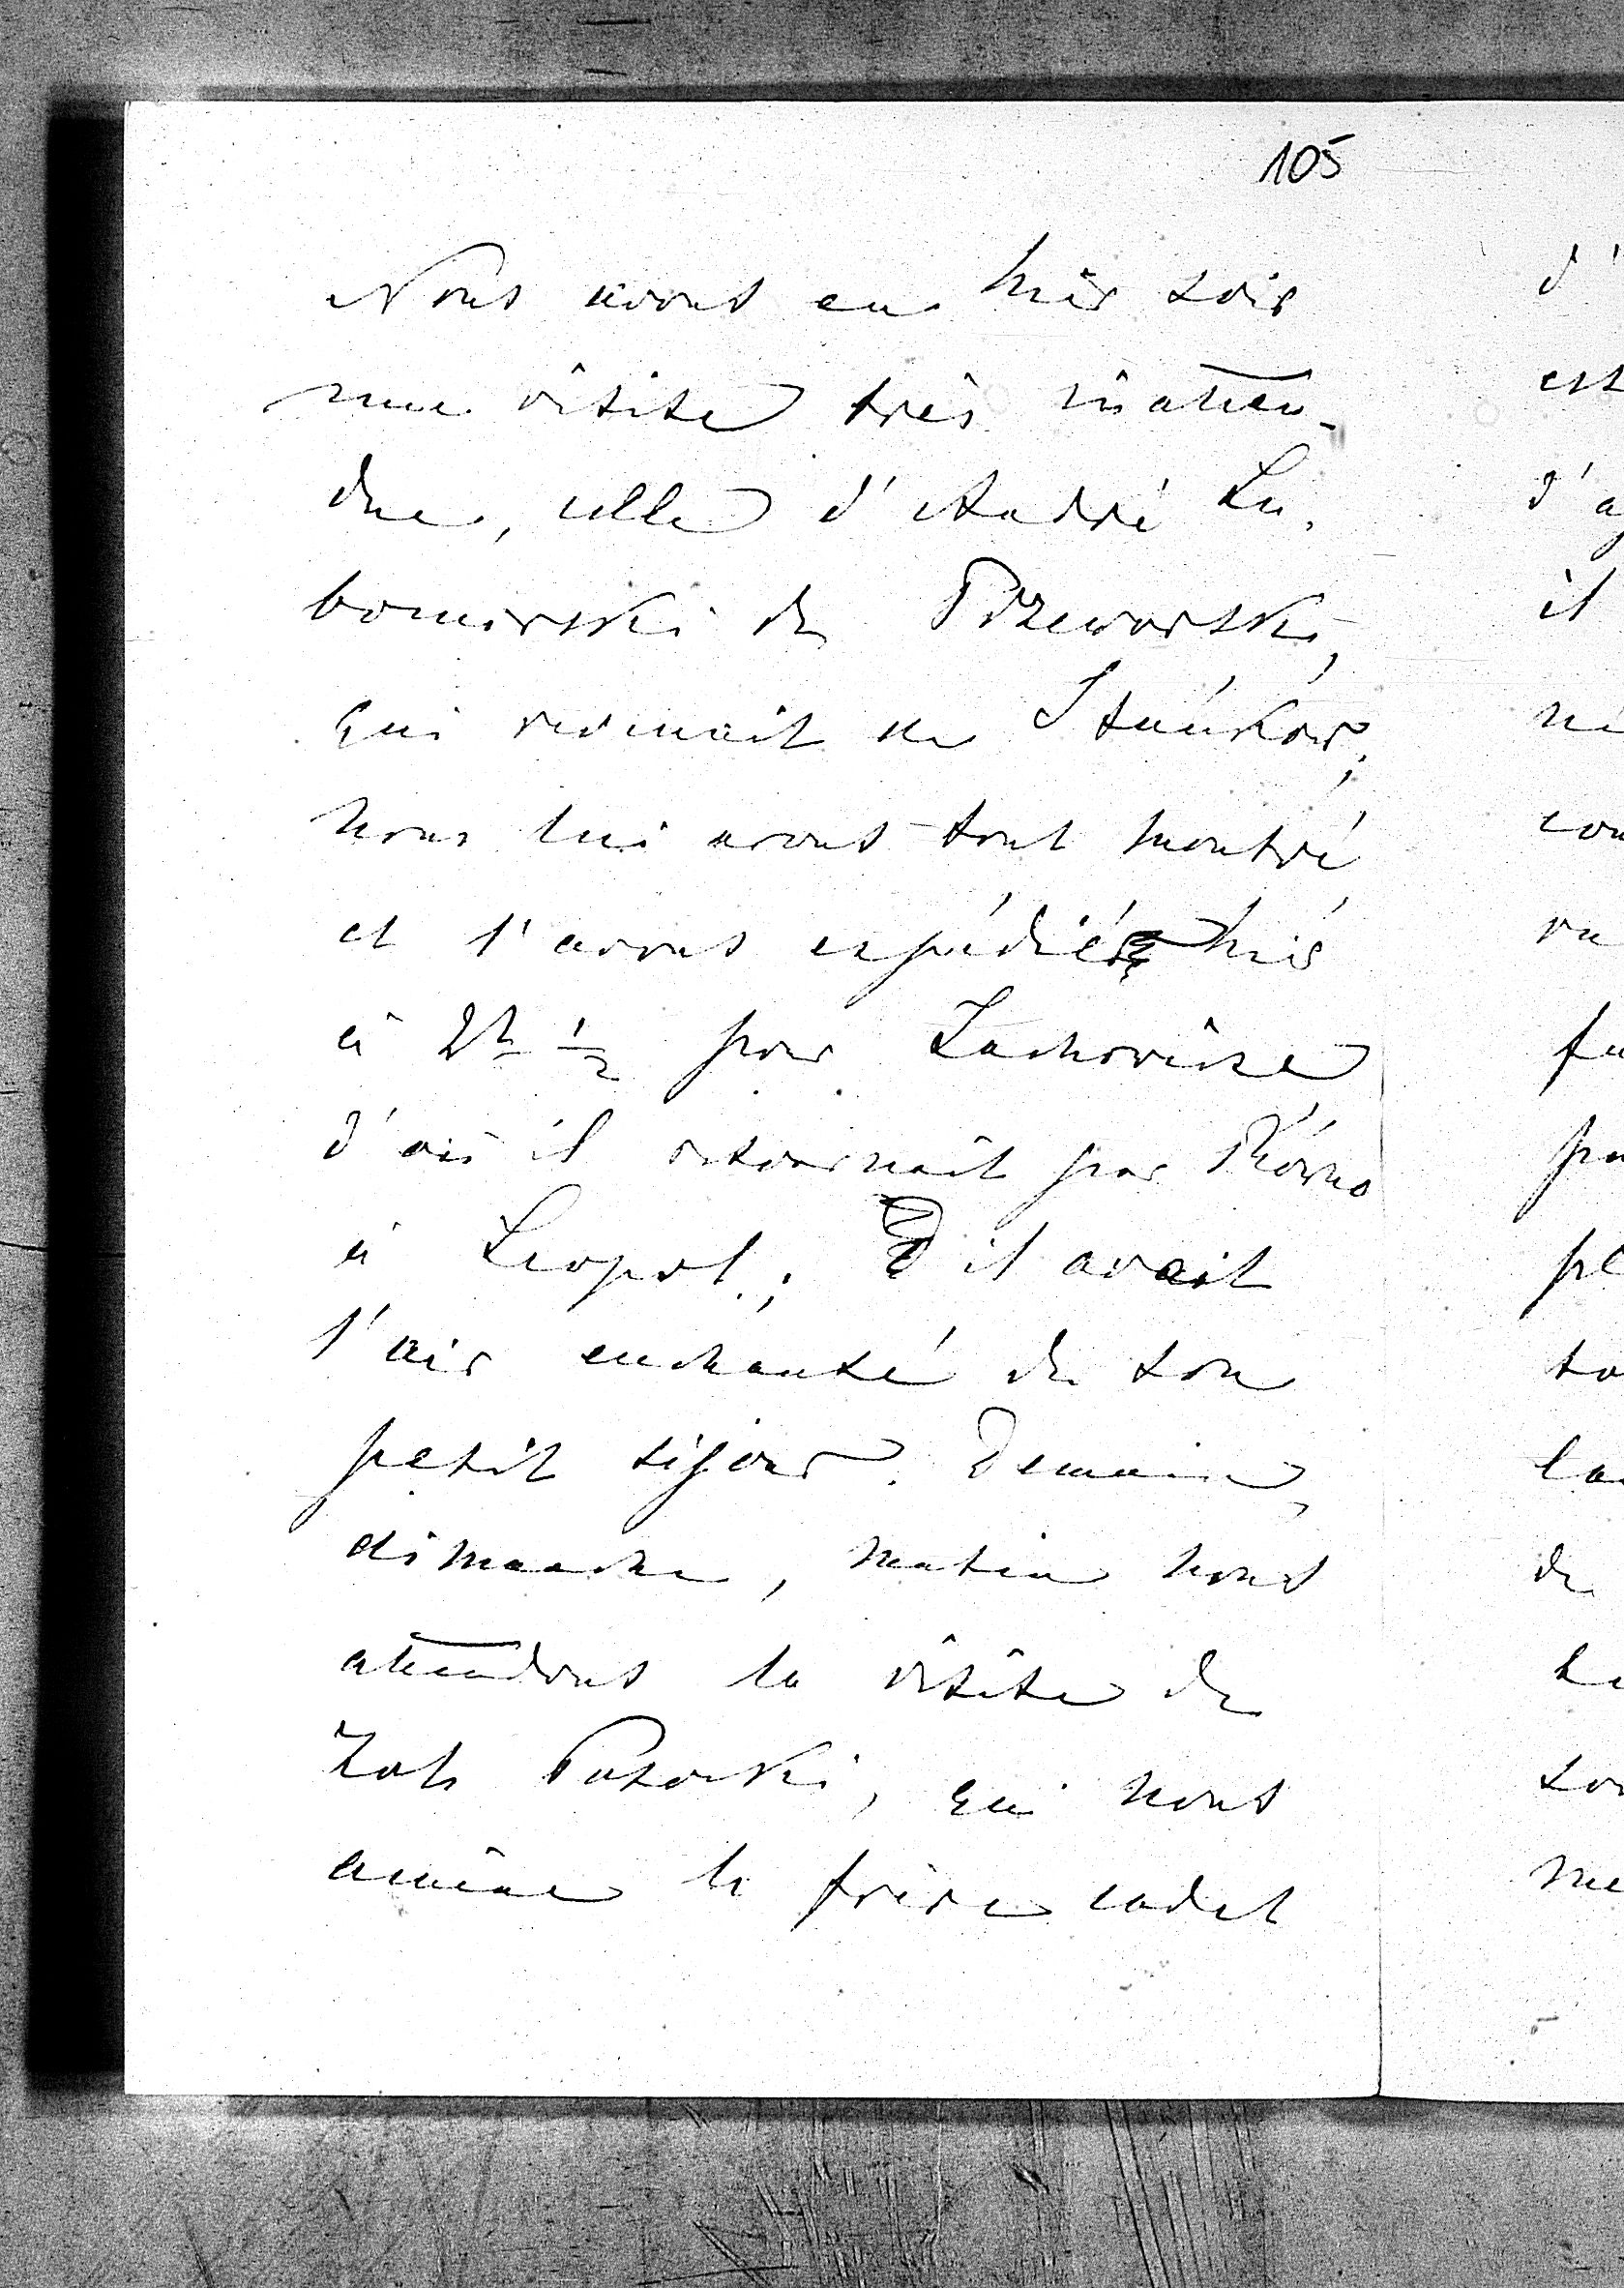 105
Nous avons eu hier soir
une visite très inatten-
due, celle d'André Lu-
bomirski de Przeworsk,
qui revenait de Stuńków;
nous lui avons tout montré
et l'avons expédié hier
à 2h 1/2 pour Lachowice
d'où il retournait par Równo
à Léopol; il avait
l'air enchanté de son
petit séjour. Demain,
dimanche, matin nous
attendons la visite de
Potocki, qui nous
amène le frère cadet
d'
est
d'a
il
né
con
va
fu
pa
pl
so
la
de
me